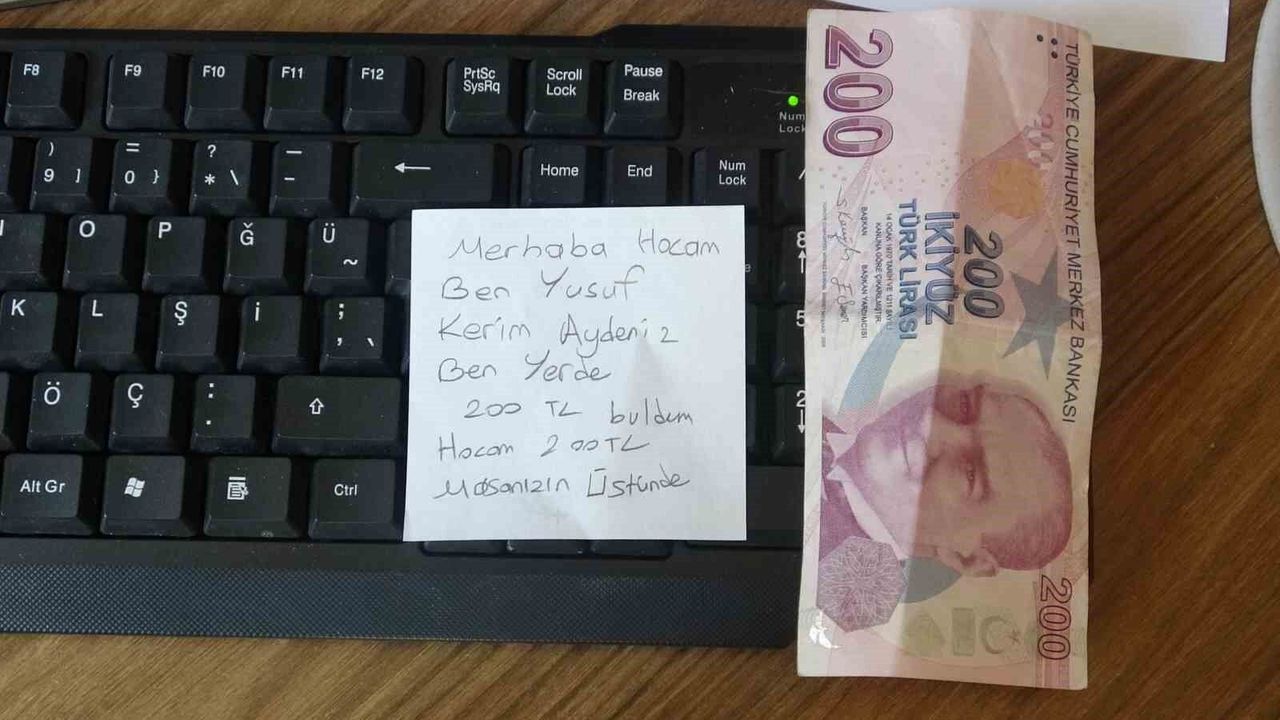 F8 F9 F10 F11 F12 PrtSc SysRq Scroll Lock Pause Break
Num Lock
) 9 ] = 0 } ? * \ _ - ← Home End Num Lock /
O P Ğ Ü ~ 8 ↑
K L Ş İ ; , ` 5
Ö Ç : . ⇧ 2 ↓
Alt Gr Ctrl
Merhaba Hocam
Ben Yusuf
Kerim Aydeniz
Ben Yerde
200 TL buldum
Hocam 200TL
Masanızın Üstünde
TÜRKİYE CUMHURİYET MERKEZ BANKASI
200
200
İKİYÜZ
TÜRK LİRASI
14 OCAK 1970 TARİH VE 1211 SAYILI
KANUNA GÖRE ÇIKARILMIŞTIR.
BAŞKAN BAŞKAN YARDIMCISI
200